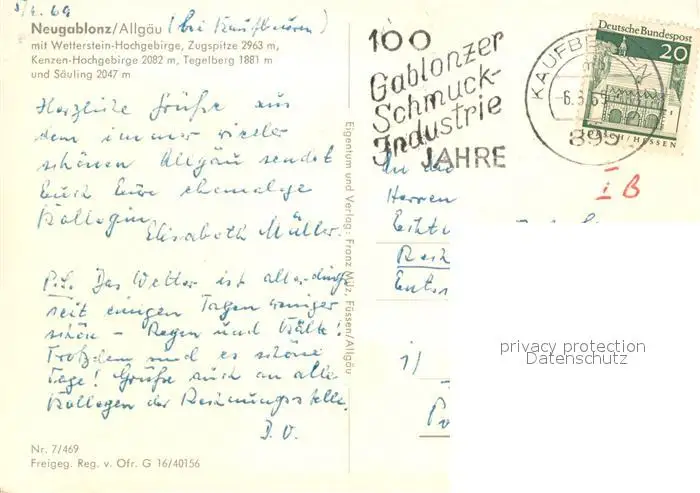 5/6.69
Neugablonz/Allgäu (bei Kaufbeuren)
mit Wetterstein-Hochgebirge, Zugspitze 2963 m,
Kenzen-Hochgebirge 2082 m, Tegelberg 1881 m
und Säuling 2047 m
Herzliche Grüße aus
dem immer wieder
schönen Allgäu sendet
Euch Eure ehemalige
Kollegin
Elisabeth Müller.
P.S. Das Wetter ist allerdings
seit einigen Tagen weniger
schön - Regen und Kälte!
Trotzdem sind es schöne
Tage! Grüße auch an alle
Kollegen der Rechnungsstelle.
D. O.
Nr. 7/469
Freigeg. Reg. v. Ofr. G 16/40156
Eigentum und Verlag: Franz Milz, Füssen/Allgäu
100
Gablonzer
Schmuck-
Industrie
JAHRE
KAUFBEUREN
-6.6.69
895
Deutsche Bundespost
20
LORSCH/HESSEN
An die
Herren
i B
1)
privacy protection
Datenschutz